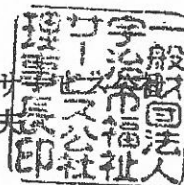 一般財団法人
宇治市福祉
サービス公社
理事長印